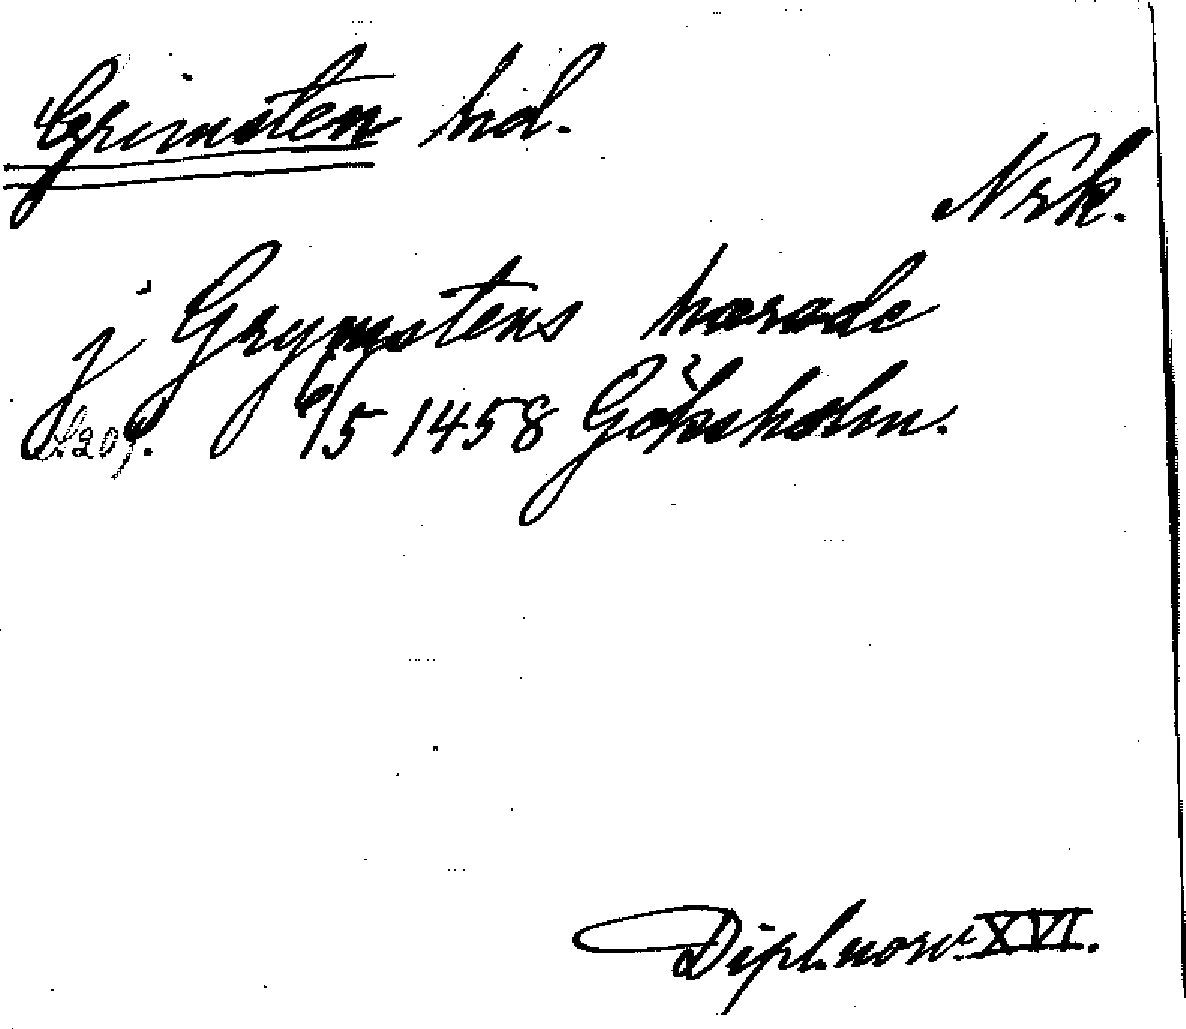 Grimsten hd.
Nrk.
j Grymstens hærade
6/5 1458 Göksholm.
Dipl. norv. XVI.